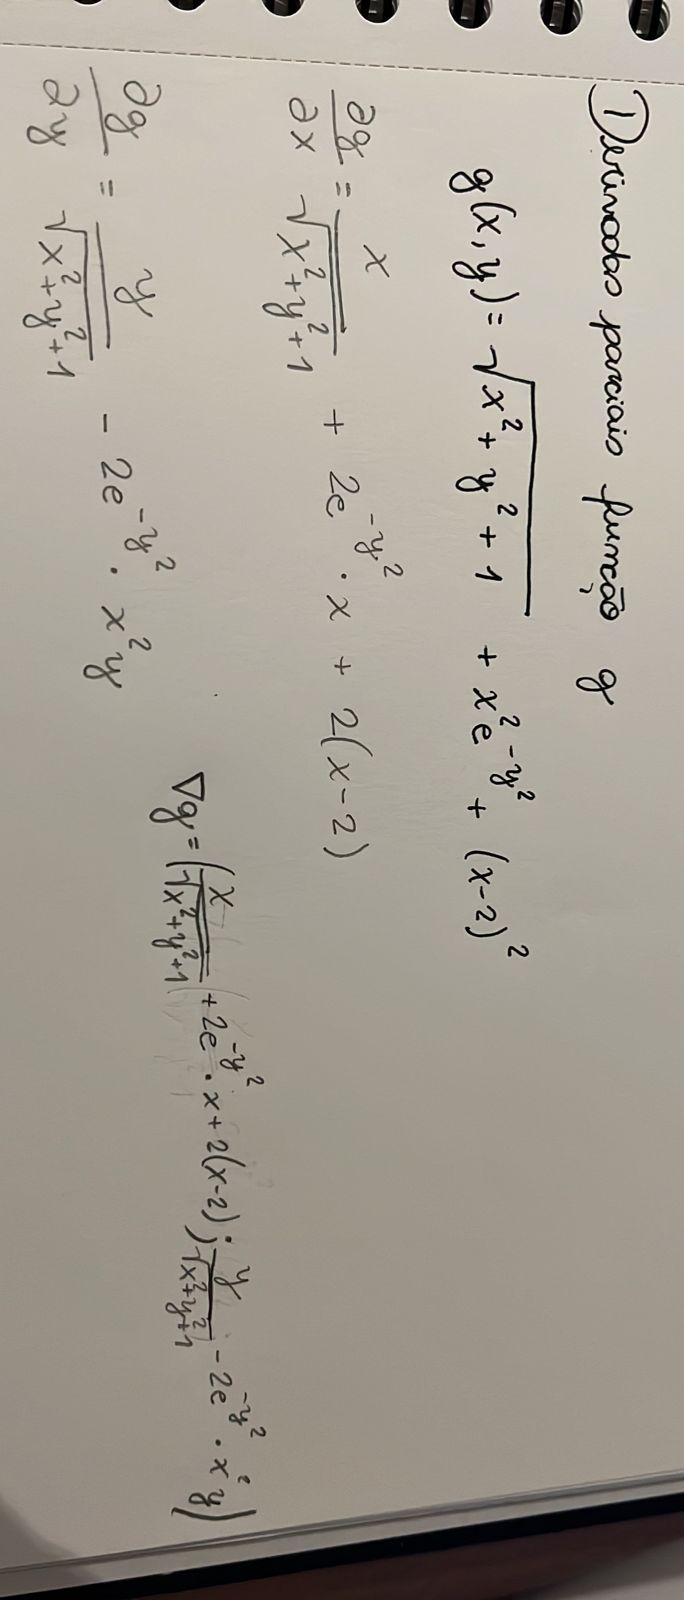 ① Derivadas parciais função g
g(x,y) = √(x² + y² + 1) + x²e^(-y²) + (x-2)²
∂g/∂x = x/√(x²+y²+1) + 2e^(-y²) · x + 2(x-2)
∂g/∂y = y/√(x²+y²+1) - 2e^(-y²) · x²y
∇g = (x/√(x²+y²+1) + 2e^(-y²) · x + 2(x-2) ; y/√(x²+y²+1) - 2e^(-y²) · x²y)